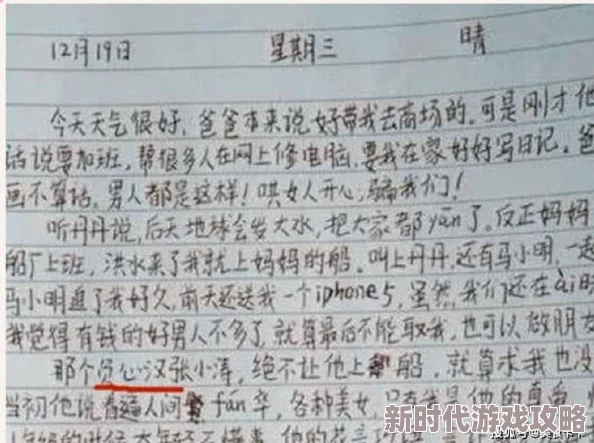 12月19日 星期三 晴
今天天气很好,爸爸本来说好带我去商场的,可是刚才他
话说要加班,帮很多人在网上修电脑,要我在家好好写日记。爸
画不算话。男人都是这样!哄女人开心,骗我们!
听丹丹说,后天地球会发大水,把大家都yān了。反正妈妈
船厂上班,洪水来了我就上妈妈的船。叫上丹丹,还有马小明,一起
马小明追了我好久,前天还送我一个iphone5,虽然,我们还在ài日
我觉得有钱的好男人不多了,就算最后不能取我,也可以做朋友
那个负心汉张小涛,绝不让他上船,就算求我也没
当初他说看遍人间fán华,各种美女,只有我是他的真
新时代游戏攻略